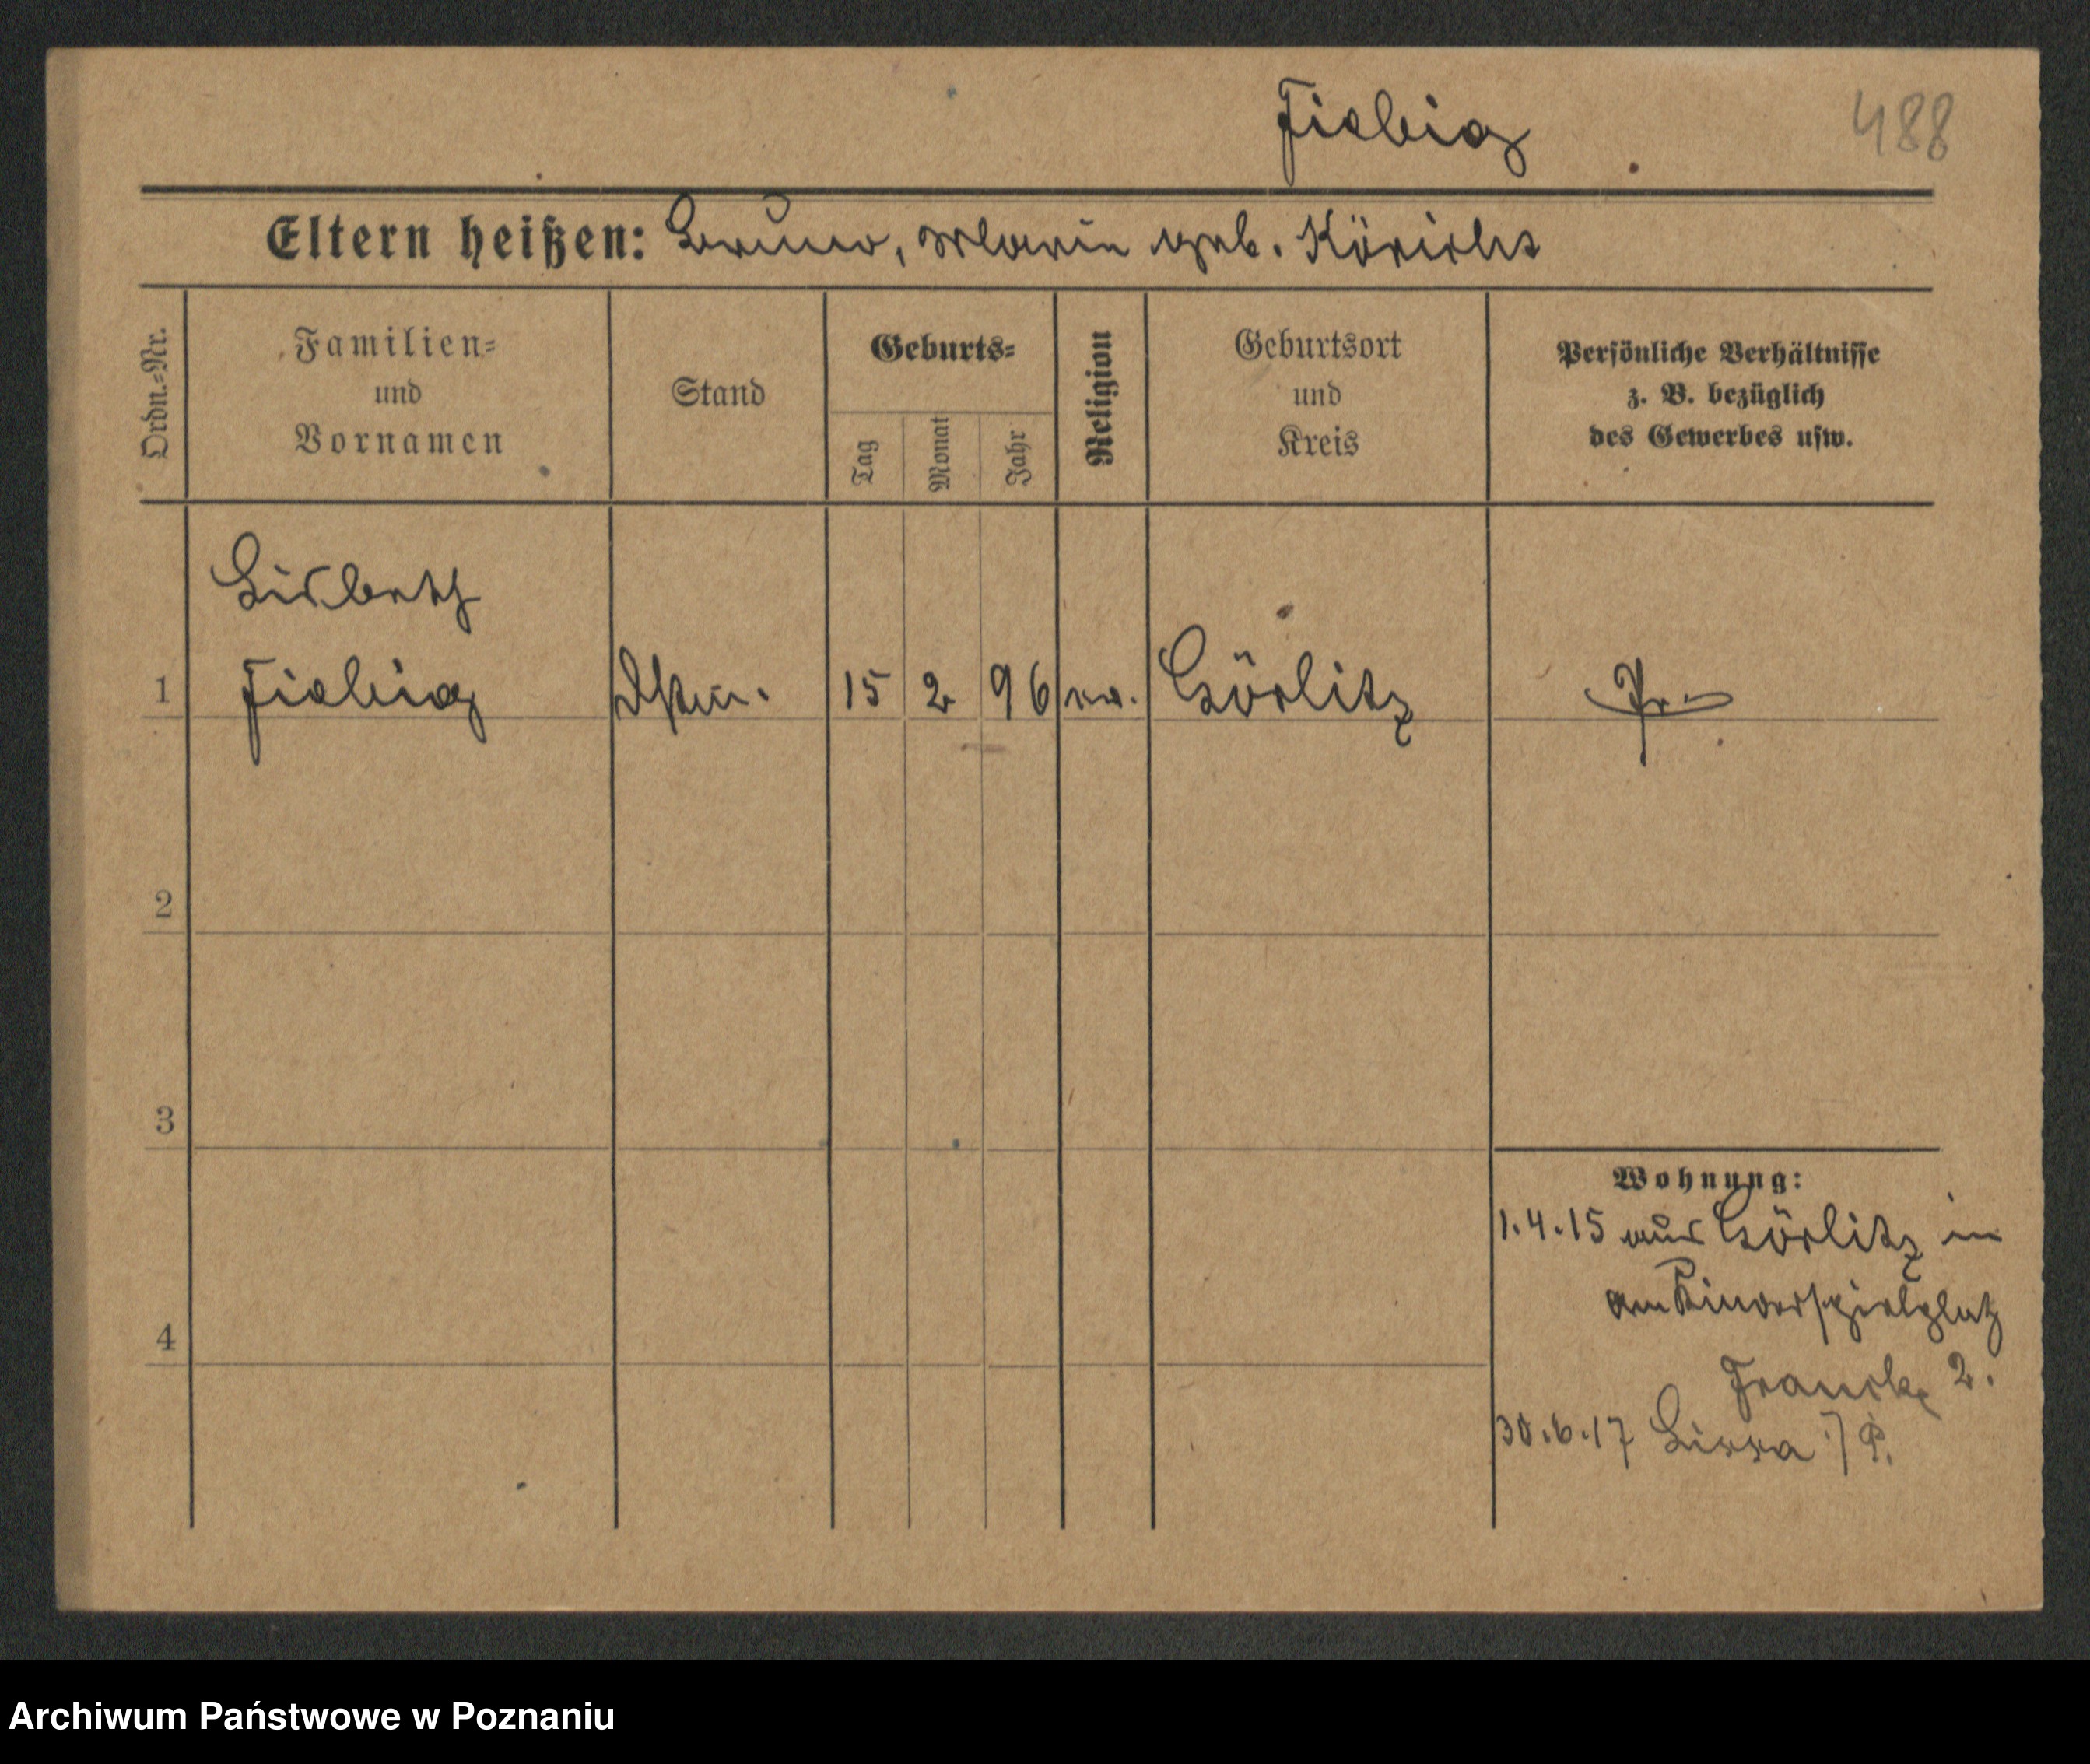 Fiebig
488
Eltern heißen: Bruno, Marie geb.
Ordn.=Nr.
Familien=
und
Vornamen
Stand
Geburts=
Tag
Monat
Jahr
Religion
Geburtsort
und
Kreis
Persönliche Verhältnisse
z. B. bezüglich
des Gewerbes usw.
Lisbeth
1 Fiebig 15 2 96 ev. Görlitz Pr.
2
3
4
Wohnung:
1.4.15 aus Görlitz in
am Kinderspielplatz
Francke 2.
30.6.17 Lissa i/P.
Archiwum Państwowe w Poznaniu